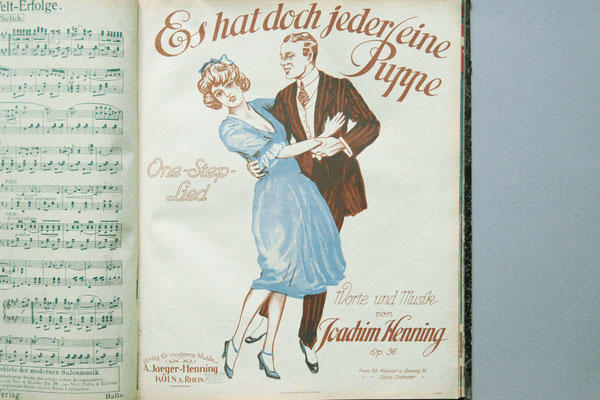 elt-Erfolge.
Es hat doch jeder seine
Puppe
One-Step-
Lied
Worte und Musik
von
Joachim Henning
Op. 36
Verlag für moderne Musik
A. Jaeger-Henning
KÖLN A. RHEIN
Preis für Klavier u. Gesang M.
Salon-Orchester
ebiete der modernen Salonmusik
erlag.
Halle.